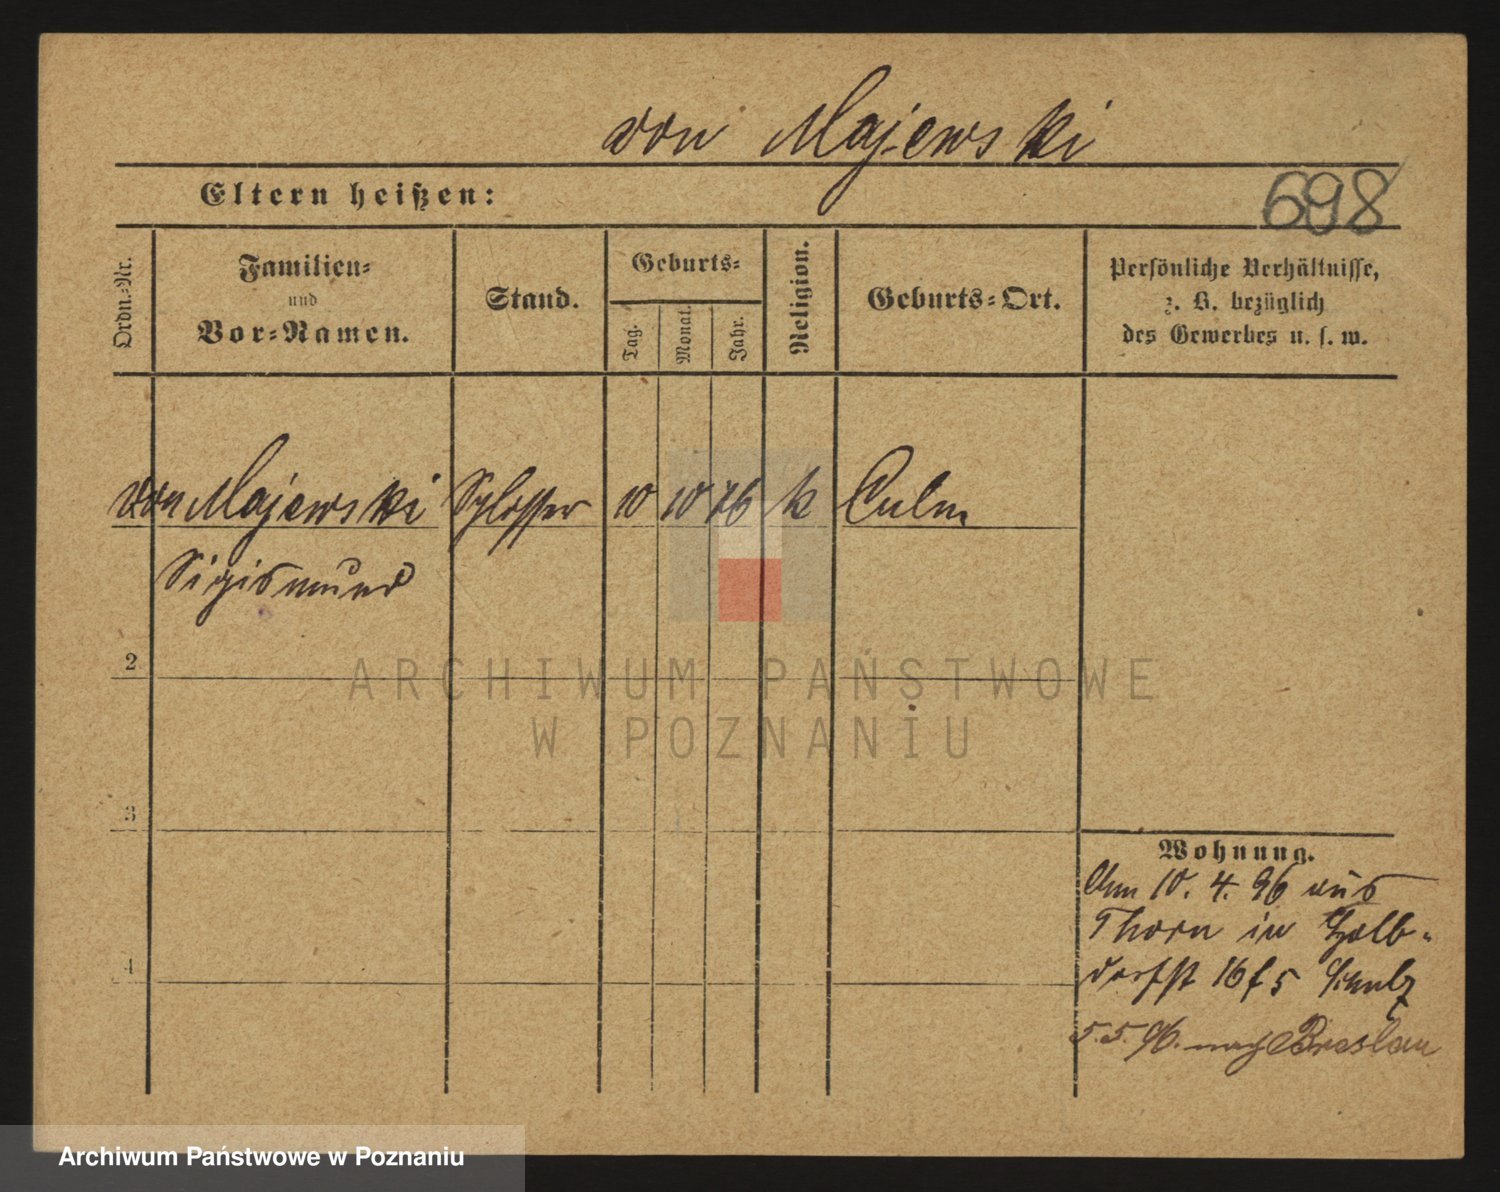 von Majewski
Eltern heißen:
698
Ordn.-Nr.
Familien-
und
Vor-Namen.
Stand.
Geburts-
Tag.
Monat.
Jahr.
Religion.
Geburts-Ort.
Persönliche Verhältnisse,
z. B. bezüglich
des Gewerbes u. s. w.
von Majewski Schlosser 10 10 76 k Culm
Sigismund
2
3
4
ARCHIWUM PAŃSTWOWE
W POZNANIU
Wohnung.
Am 10. 4. 96 aus
Thorn in Halb-
dorfst 16 f 5 Schulz
5.5.96. nach Breslau
Archiwum Państwowe w Poznaniu